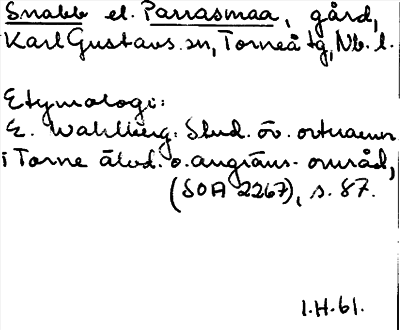 Snabb el. Parrasmaa, gård,
Karl Gustavs sn, Torneå tg, Nb. l.
Etymologi:
E. Wahlberg: Stud. öv. ortnamn
i Torne älvd. o. angräns. område,
(SOA 2267), s. 87.
1.H.61.